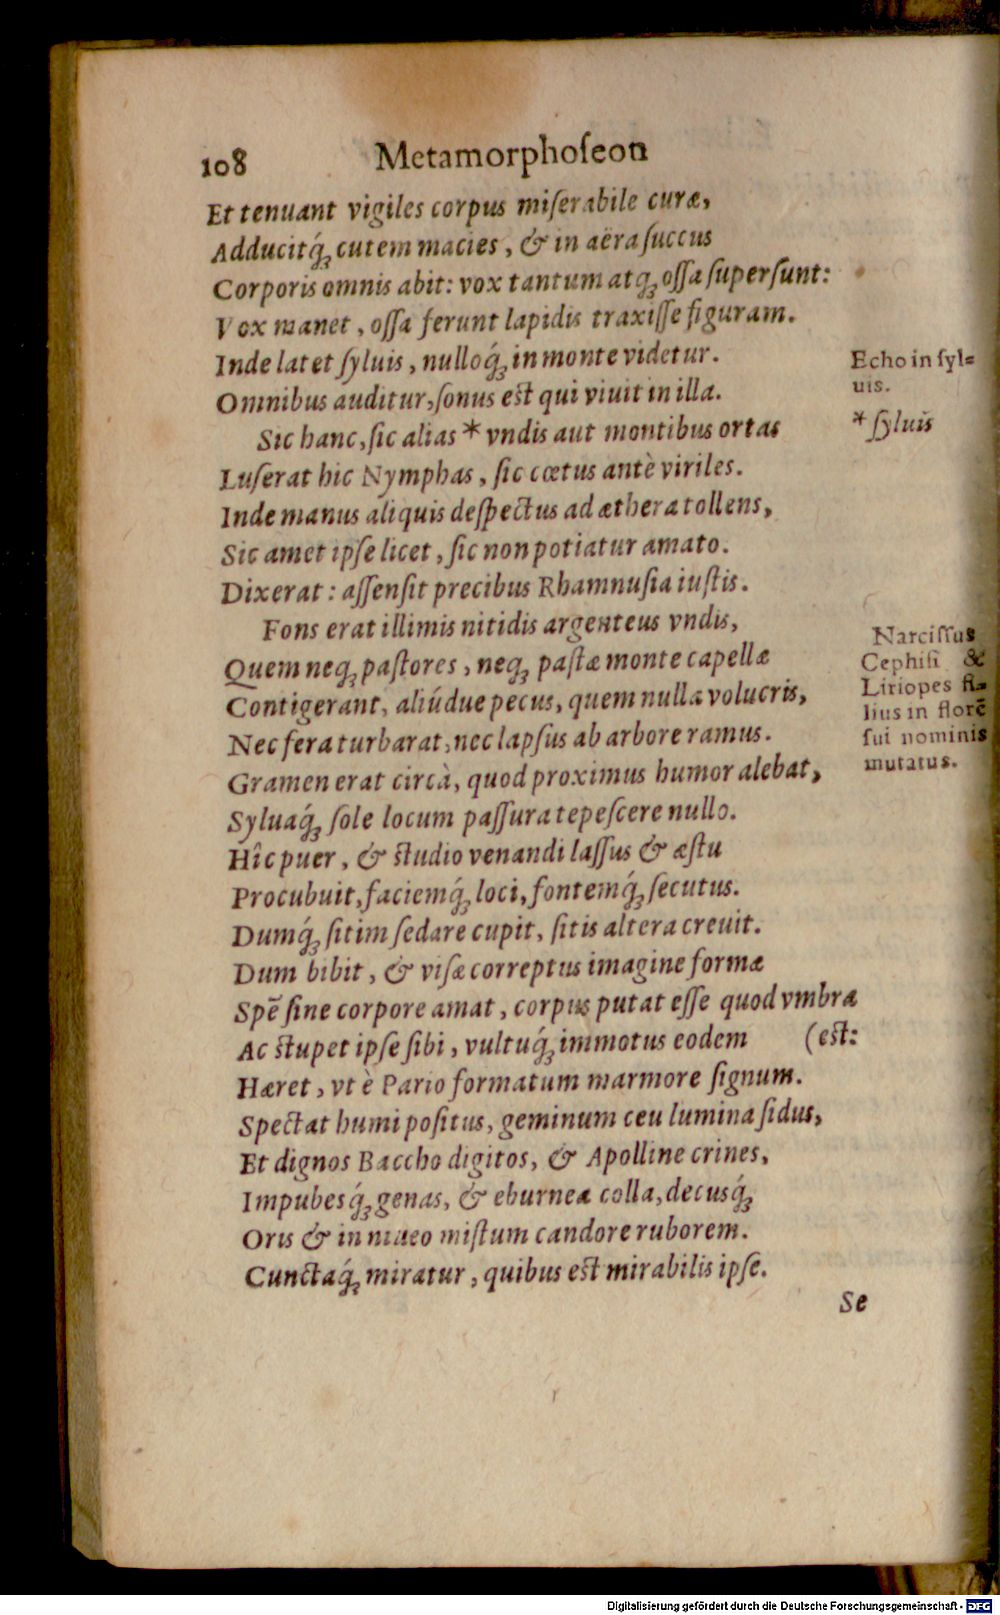 108 Metamorphoſeon
Et tenuant vigiles corpus miſerabile curæ,
Adducitq́ꝫ cutem macies, & in aëra ſuccus
Corporis omnis abit: vox tantum atqꝫ oſſa ſuperſunt:
Vox manet, oſſa ferunt lapidis traxiſſe figuram.
Inde latet ſyluis, nulloq́ꝫ in monte videtur.
Omnibus auditur, ſonus est qui viuit in illa.
Echo in ſyl=
uis.
Sic hanc, ſic alias * vndis aut montibus ortas
* ſyluis
Luſerat hic Nymphas, ſic cœtus antè viriles.
Inde manus aliquis deſpectus ad æthera tollens,
Sic amet ipſe licet, ſic non potiatur amato.
Dixerat: aſſenſit precibus Rhamnuſia iuſtis.
Fons erat illimis nitidis argenteus vndis,
Quem neqꝫ paſtores, neqꝫ paſtæ monte capellæ
Contigerant, aliúdue pecus, quem nulla volucris,
Nec fera turbarat, nec lapſus ab arbore ramus.
Gramen erat circà, quod proximus humor alebat,
Narciſſus
Cephiſi &
Liriopes fi=
lius in florē
ſui nominis
mutatus.
Syluaq́ꝫ ſole locum paſſura tepeſcere nullo.
Hîc puer, & ſtudio venandi laſſus & æſtu
Procubuit, faciemq́ꝫ loci, fontemq́ꝫ ſecutus.
Dumq́ꝫ ſitim ſedare cupit, ſitis altera creuit.
Dum bibit, & viſæ correptus imagine formæ
Spē ſine corpore amat, corpus putat eſſe quod vmbra
(est:
Ac ſtupet ipſe ſibi, vultuq́ꝫ immotus eodem
Hæret, vt è Pario formatum marmore ſignum.
Spectat humi poſitus, geminum ceu lumina ſidus,
Et dignos Baccho digitos, & Apolline crines,
Impubesq́ꝫ genas, & eburnea colla, decusq́ꝫ
Oris & in niueo miſtum candore ruborem.
Cunctaq́ꝫ miratur, quibus est mirabilis ipſe.
Se
Digitalisierung gefördert durch die Deutsche Forschungsgemeinschaft - DFG